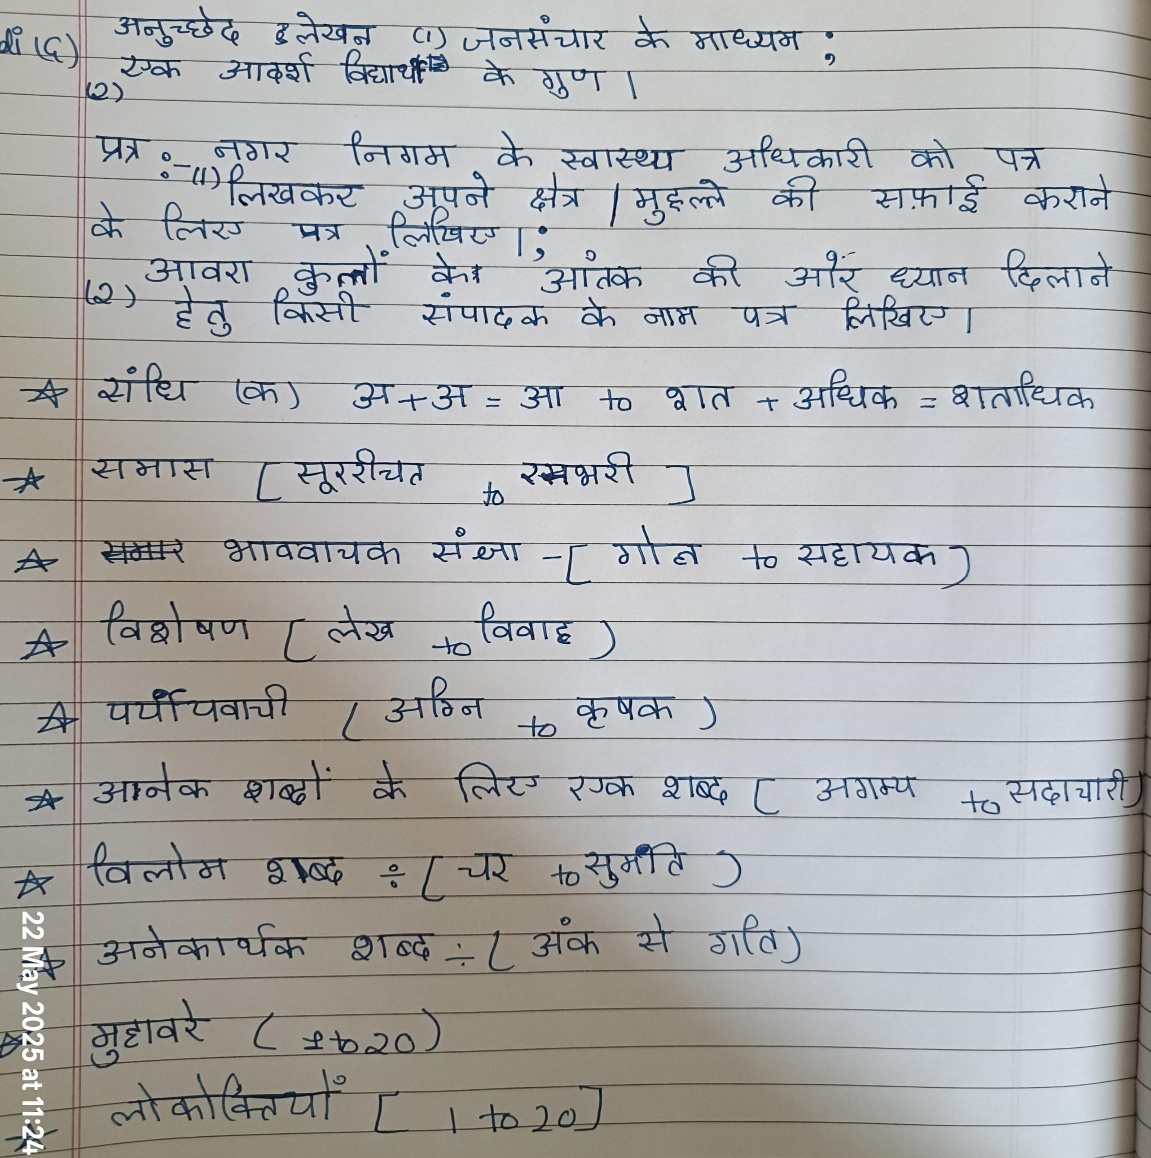 di (G) अनुच्छेद लेखन (1) जनसंचार के माध्यम ;
(2) एक आदर्श विद्यार्थी के गुण |
पत्र :- नगर निगम के स्वास्थ्य अधिकारी को पत्र
(1) लिखकर अपने क्षेत्र / मुहल्ले की सफ़ाई कराने
के लिए पत्र लिखिए | ;
(2) आवरा कुत्तों के आंतक की ओर ध्यान दिलाने
हेतु किसी संपादक के नाम पत्र लिखिए |
☆ संधि (क) अ + अ = आ to शत + अधिक = शताधिक
☆ समास [ सूररीचत to रसभरी ]
☆ भाववाचक संज्ञा - [ गोत्र to सहायक )
☆ विशेषण [ लेख to विवाह )
☆ पर्यायवाची ( अग्नि to कृषक )
☆ अनेक शब्दों के लिए एक शब्द [ अगम्य to सदाचारी )
☆ विलोम शब्द ÷ [ चर to सुमति )
☆ अनेकार्थक शब्द ÷ [ अंक से गति )
☆ मुहावरे ( 1 to 20 )
☆ लोकोक्तियाँ [ 1 to 20 ]
22 May 2025 at 11:24